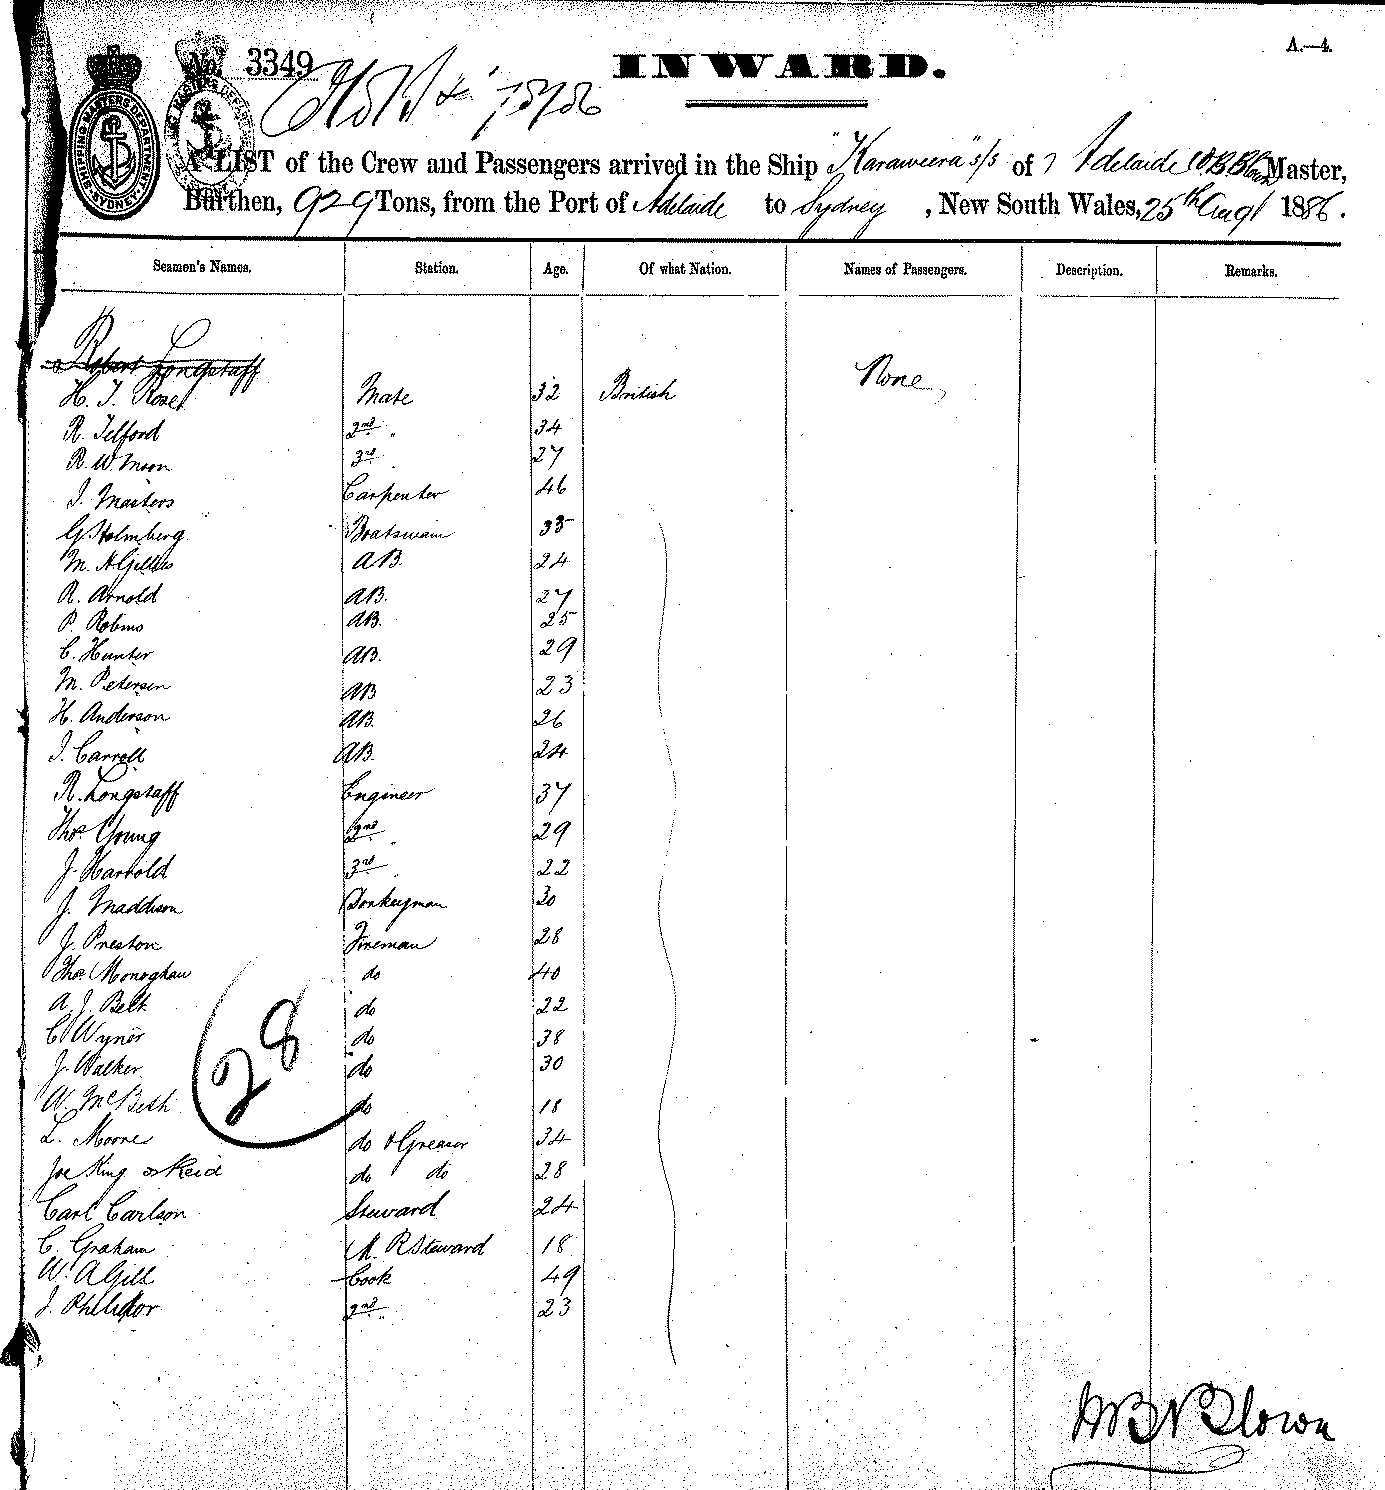 A.—4.
No. 3349
INWARD.
SHIPPING MASTERS DEPARTMENT SYDNEY
A LIST of the Crew and Passengers arrived in the Ship "Karaweera" s/s of Adelaide W.B.Blown Master,
Burthen, 929 Tons, from the Port of Adelaide to Sydney, New South Wales, 25th Augt 1886.
Seamen's Names. Station. Age. Of what Nation. Names of Passengers. Description. Remarks.
Robert Longstaff
None
H. J. Roset Mate 32 British
R. Telford 2nd " 34
R. W. Moon 3rd 27
J. Masters Carpenter 46
G Holmberg Boatswain 33
M. H Gillies AB. 24
R. Arnold AB. 27
P. Robins AB. 25
C. Hunter AB. 29
M. Petersen AB 23
H. Anderson AB. 26
J. Carroll AB. 24
R. Longstaff Engineer 37
Thos. Young 2nd " 29
J. Harrold 3rd 22
J. Maddison Donkeyman 30
J. Preston Fireman 28
Thos. Monoghan do 40
A. J. Belt do 22
C Wyner do 38
J. Walker do 30
W. McBeth do 18
28
L. Moore do & Greaser 34
Joe King or Reid do do 28
Carl Carlson Steward 24
C. Graham M. R Steward 18
W. A Gill Cook 49
J. 2nd " 23